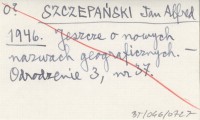 o? SZCZEPAŃSKI Jan Alfred
1946. Jeszcze o nowych
nazwach geograficznych. —
Odrodzenie 3, nr 37.
BT/066/0727